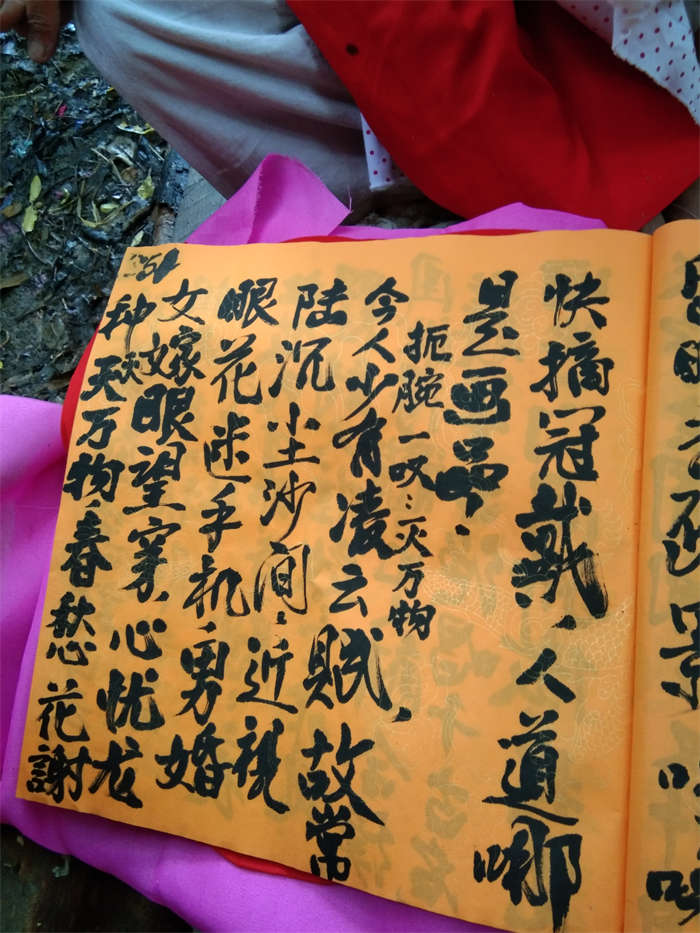 快摘冠戴，人道哪
是画品.
扼腕一叹:灭万物
今人少有凌云赋，故常
陆沉尘沙间:近视
眼花迷手机，男婚
女嫁眼望穿，心忧龙
种灭万物，春愁花謝